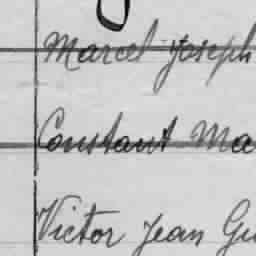 Marcel Joseph
Constant Ma
Victor Jean Gu